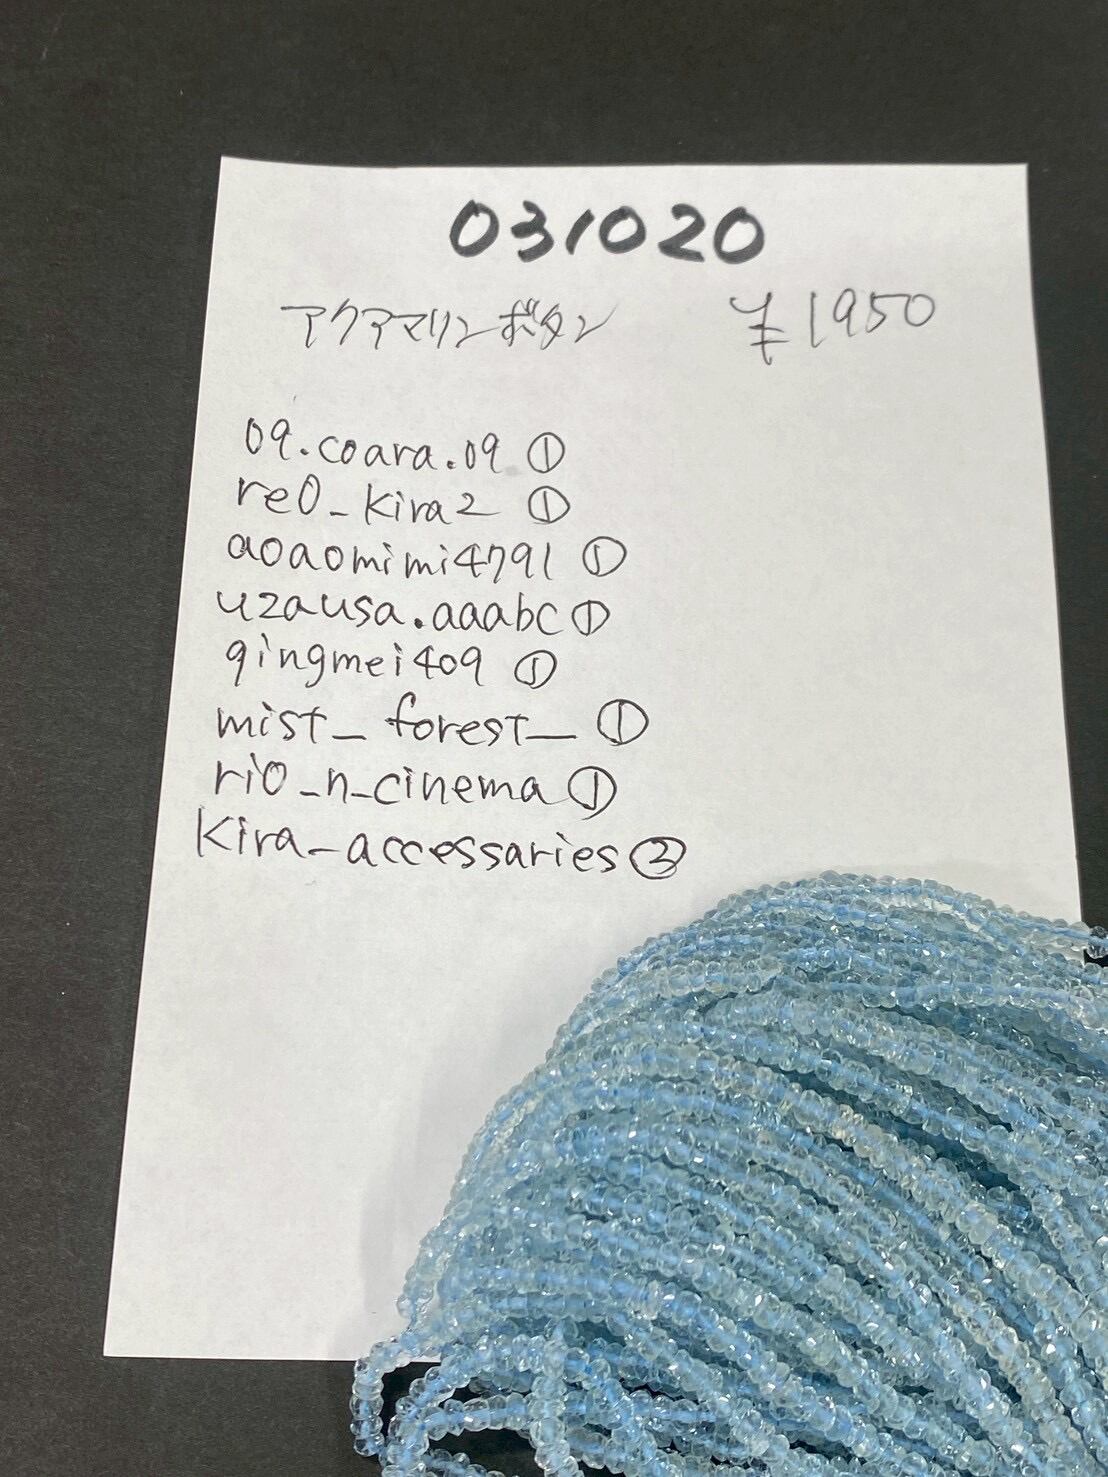 031020
アクアマリンボタン ¥1950
09.coara.09 ①
re0_kira2 ①
aoaomimi4791 ①
uzausa.aaabc ①
qingmei409 ①
mist_forest_ ①
rio_n_cinema ①
kira_accessaries ②